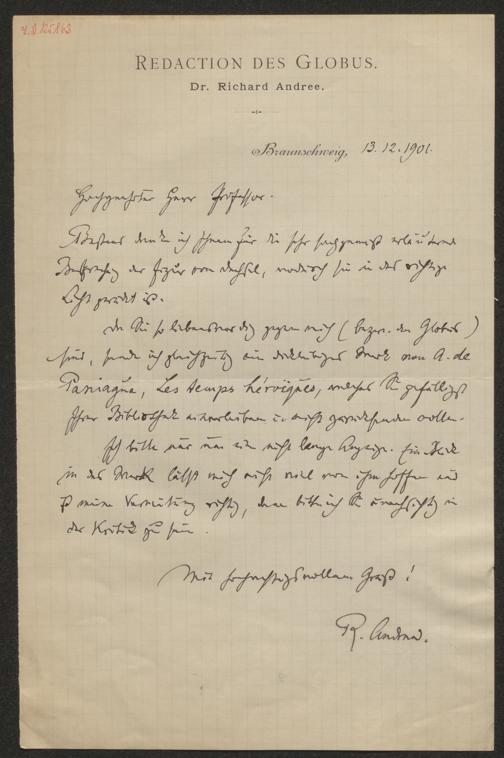 REDACTION DES GLOBUS.
Dr. Richard Andree.
Braunschweig, 13.12.1901.
Hochgeehrter Herr Professor.
Bestens danke ich Ihnen für die sehr sachgemäß erläuternde
Besprechung der Figur von wodurch sie in das richtige
Licht gerückt ist.
Da Sie so liebenswürdig gegen mich (bezw. den Globus)
sind, sende ich gleichzeitig ein Werk von A. de
Paniagua, Les temps héroïques, welches Sie gefälligst
Ihrer Bibliothek einverleiben u. nicht zurücksenden wollen.
Ich bitte nur um eine nicht lange Anzeige. Ein Blick
in das Werk läßt mich nicht viel von ihm hoffen und
ist meine Vermutung richtig, dann bitte ich Sie in
der Kritik zu sein.
Mit hochachtungsvollem Gruß!
R. Andree.